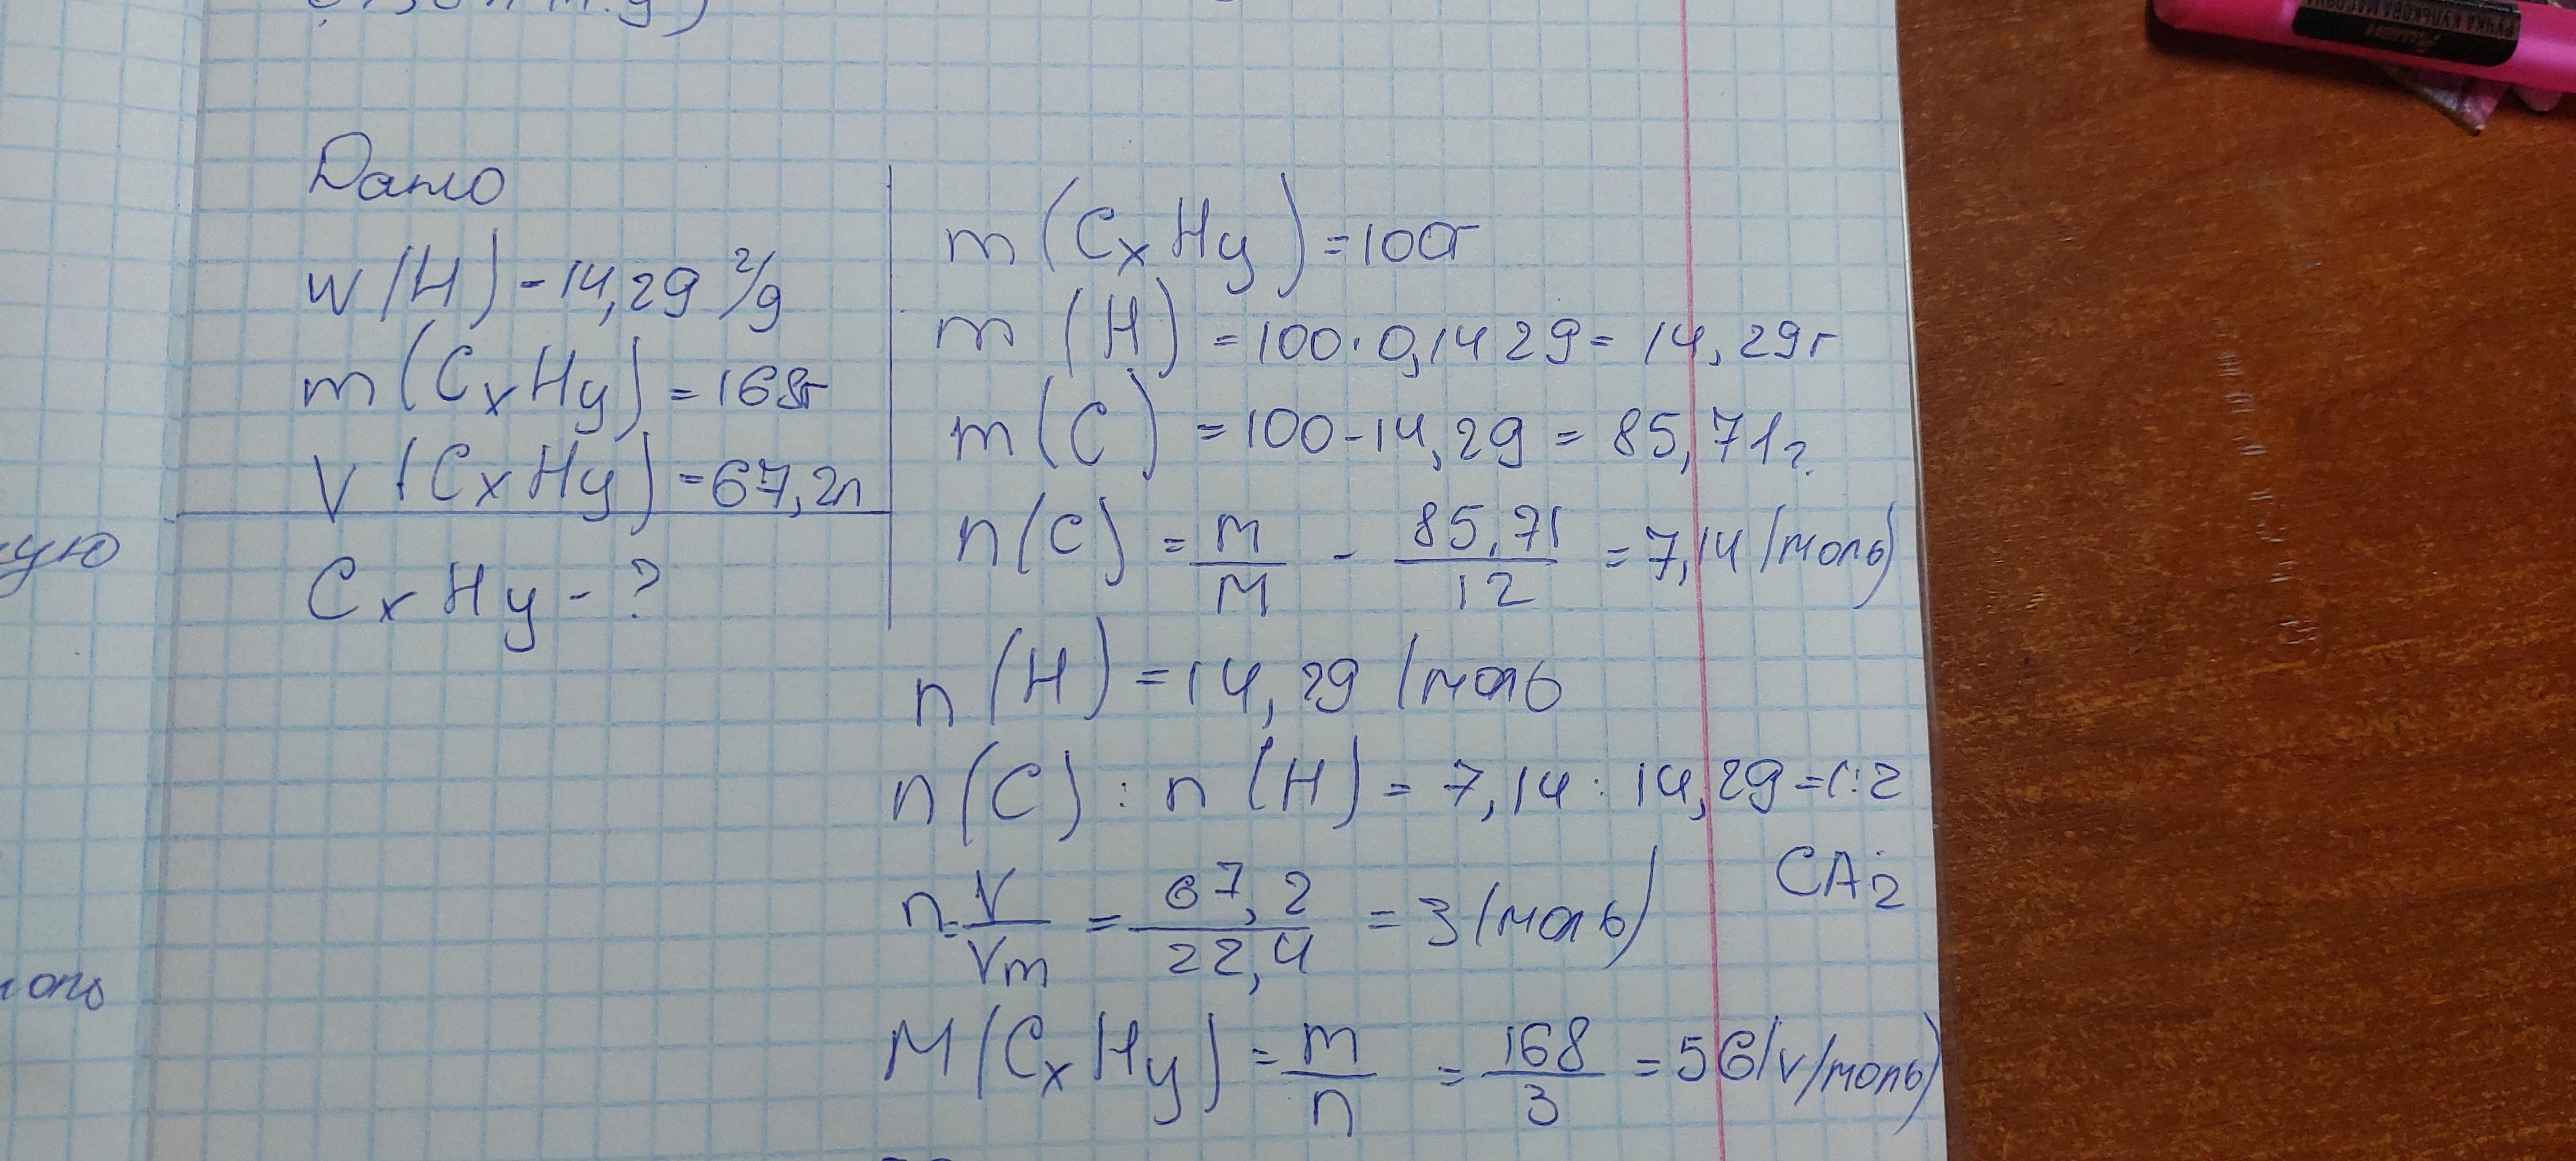 Дано
W(H) - 14,29 %
m(CxHy) = 168г
V(CxHy) = 67,2л
CxHy - ?
m(CxHy) = 100г
m(H) = 100·0,1429 = 14,29г
m(C) = 100-14,29 = 85,71г.
n(C) = m/M - 85,71/12 = 7,14 (моль)
n(H) = 14,29 (моль
n(C) : n(H) = 7,14 : 14,29 = 1:2
CH2
n = V/Vm = 67,2/22,4 = 3 (моль)
M(CxHy) = m/n = 168/3 = 56 (г/моль)
ную